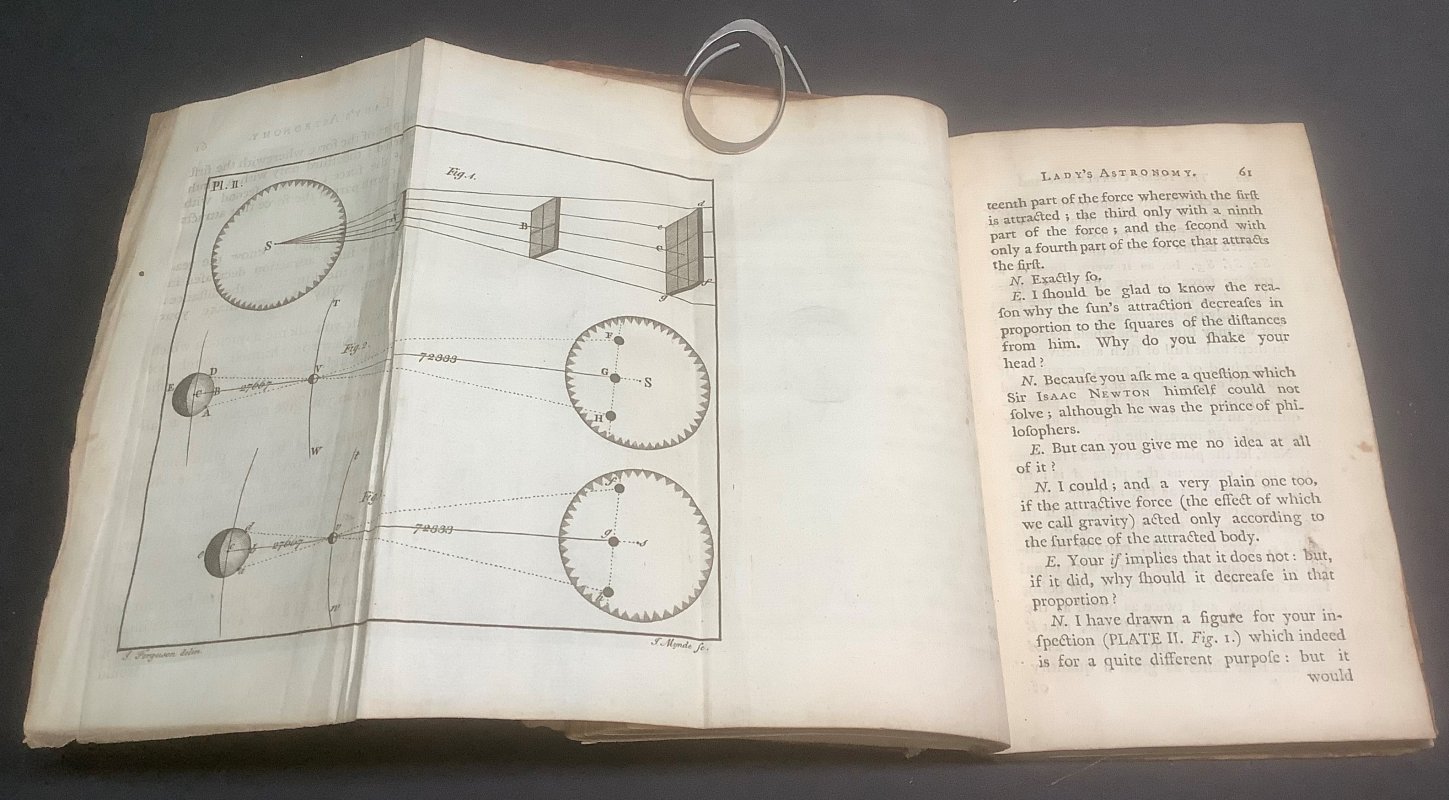 Pl. II.
Fig. 1.
S
B
d
e
C
f
g
T
Fig. 2.
72333
F
G
S
H
E
D
C
B
A
27667
V
W
t
Fig
72333
f
g
s
h
e
d
c
b
a
27667
v
w
J. Ferguson delin.
J. Mynde sc.
LADY'S ASTRONOMY. 61
teenth part of the force wherewith the firſt
is attracted ; the third only with a ninth
part of the force ; and the ſecond with
only a fourth part of the force that attracts
the firſt.
N. Exactly ſo.
E. I ſhould be glad to know the rea-
ſon why the ſun's attraction decreaſes in
proportion to the ſquares of the diſtances
from him. Why do you ſhake your
head ?
N. Becauſe you aſk me a queſtion which
Sir ISAAC NEWTON himſelf could not
ſolve ; although he was the prince of phi-
loſophers.
E. But can you give me no idea at all
of it ?
N. I could ; and a very plain one too,
if the attractive force (the effect of which
we call gravity) acted only according to
the ſurface of the attracted body.
E. Your if implies that it does not : but,
if it did, why ſhould it decreaſe in that
proportion ?
N. I have drawn a figure for your in-
ſpection (PLATE II. Fig. 1.) which indeed
is for a quite different purpoſe : but it
would